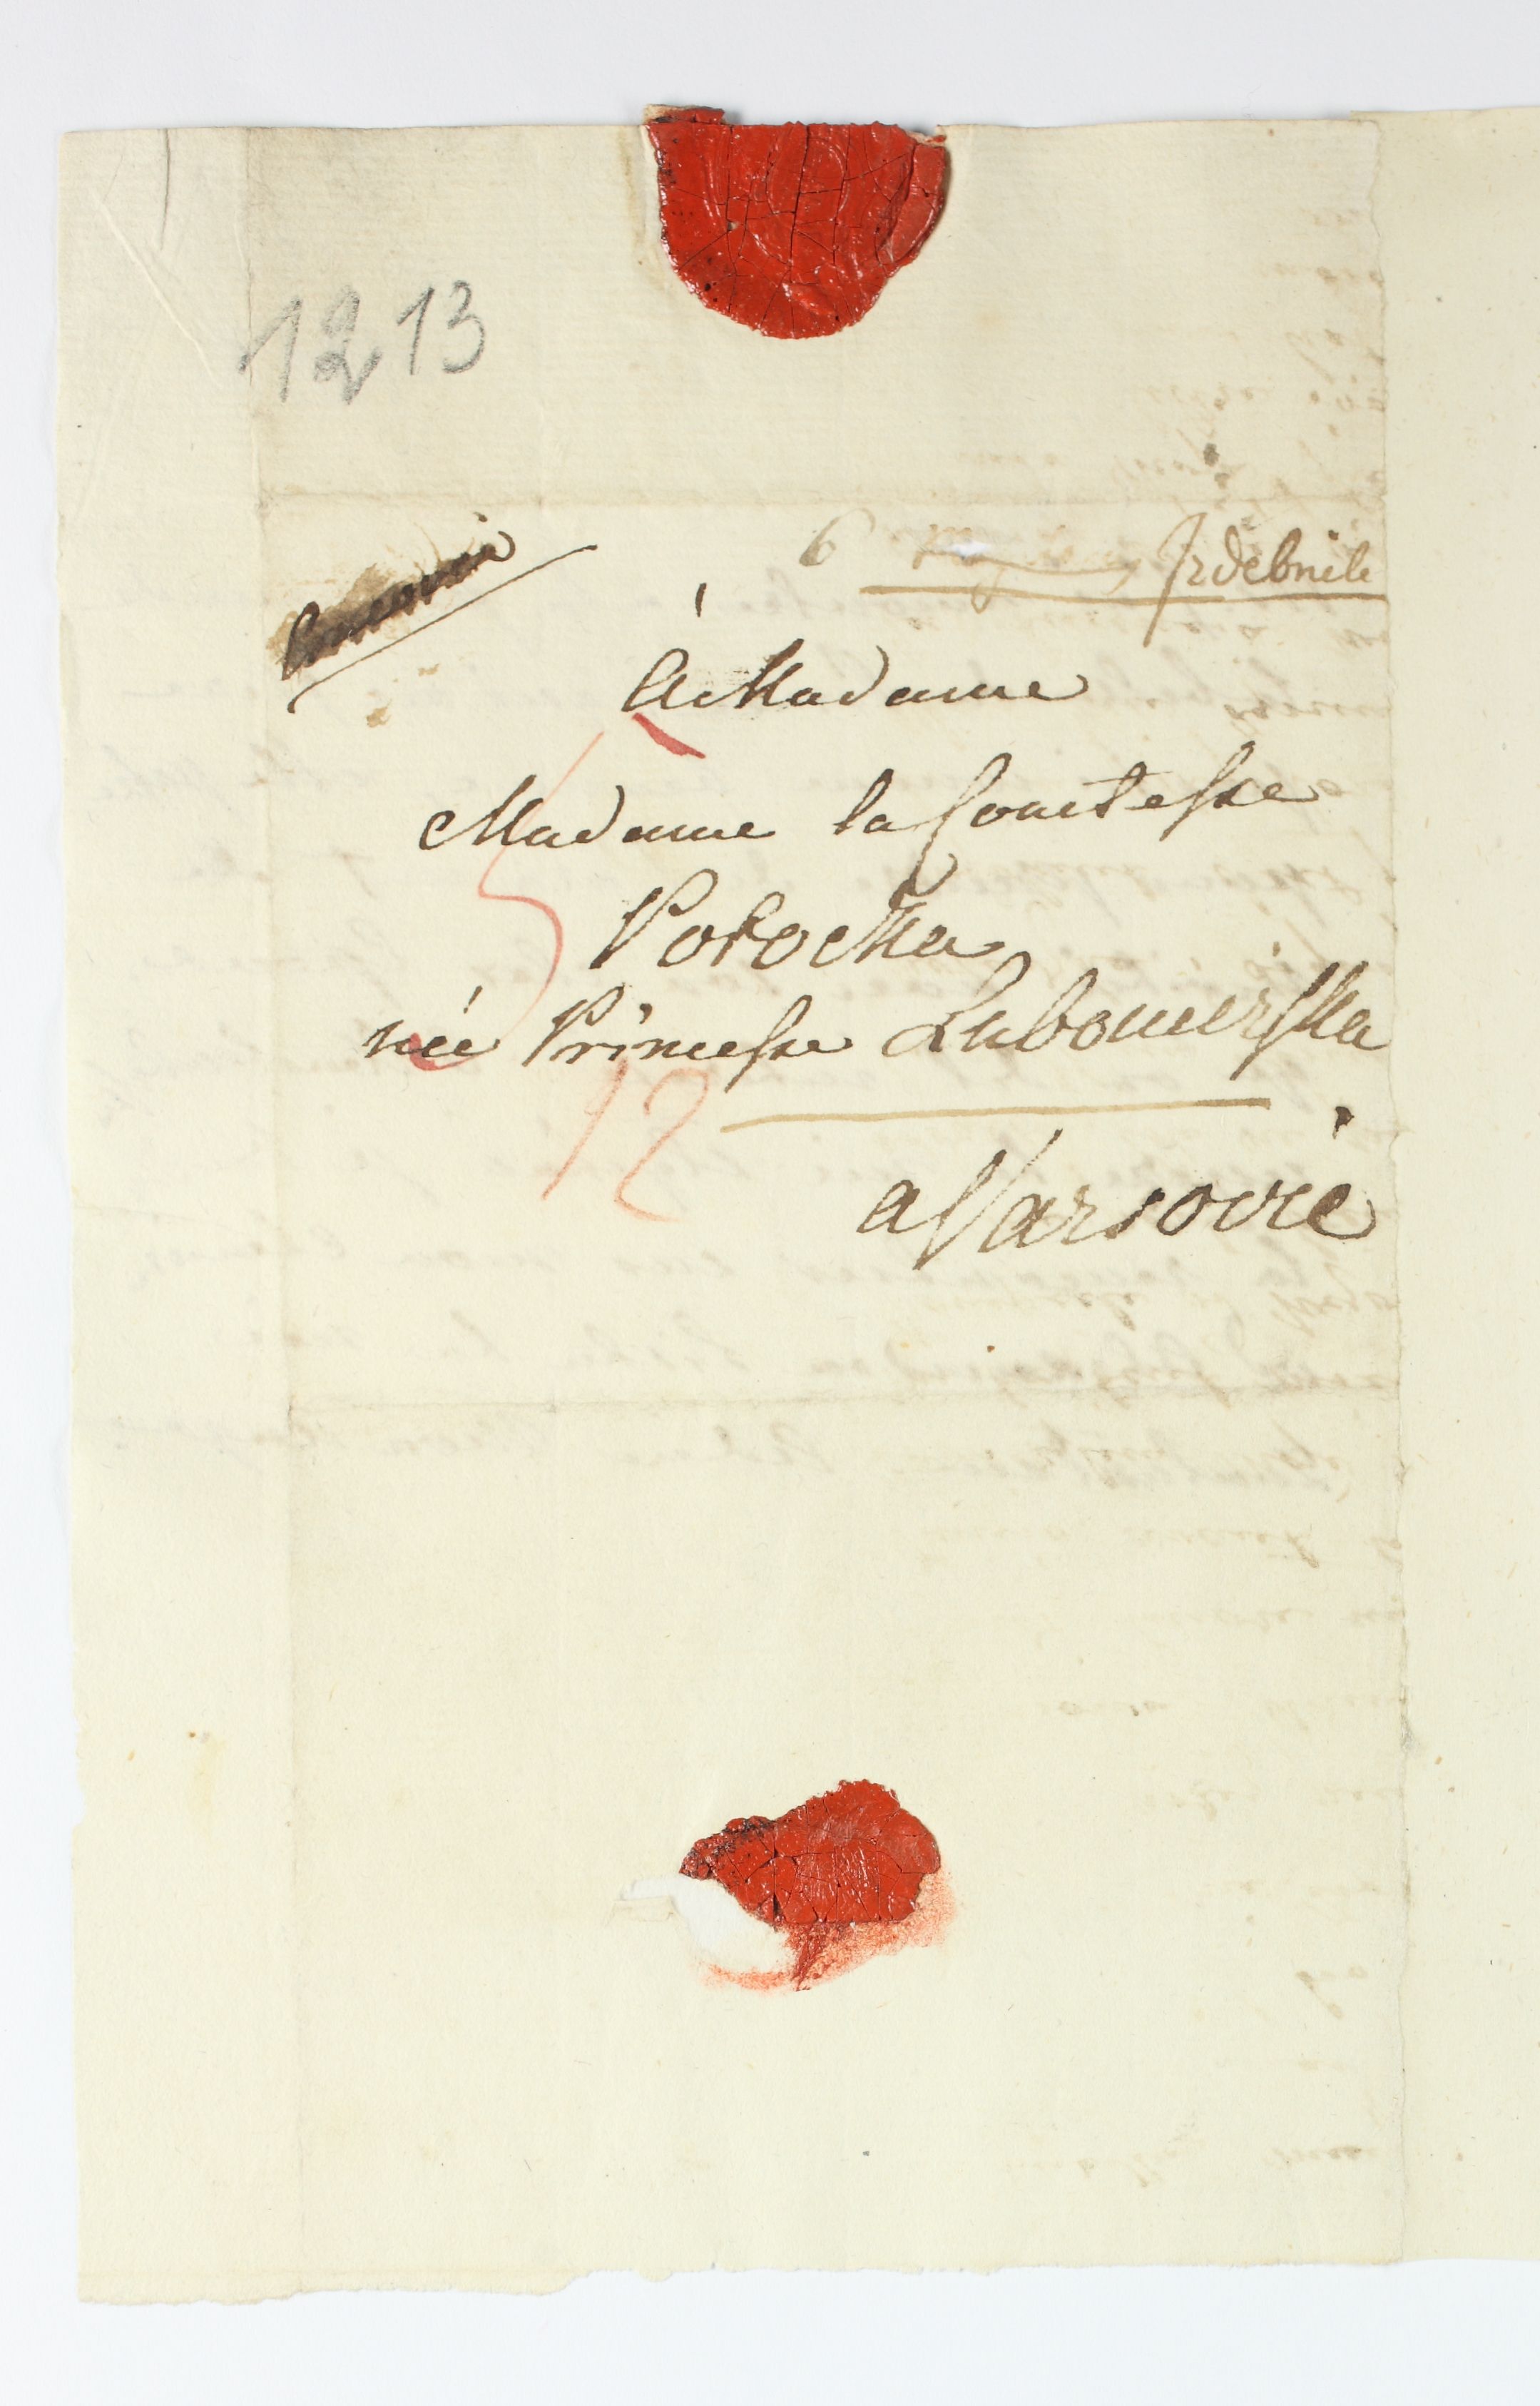 12 13
6
Izdebnik
à Madame
Madame la Comtesse
Potocka
née Princesse Lubomirska
12
à Varsovie